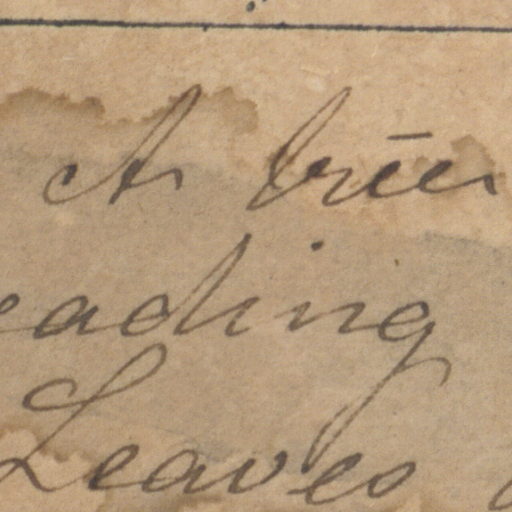 A tree
eading
Leaves